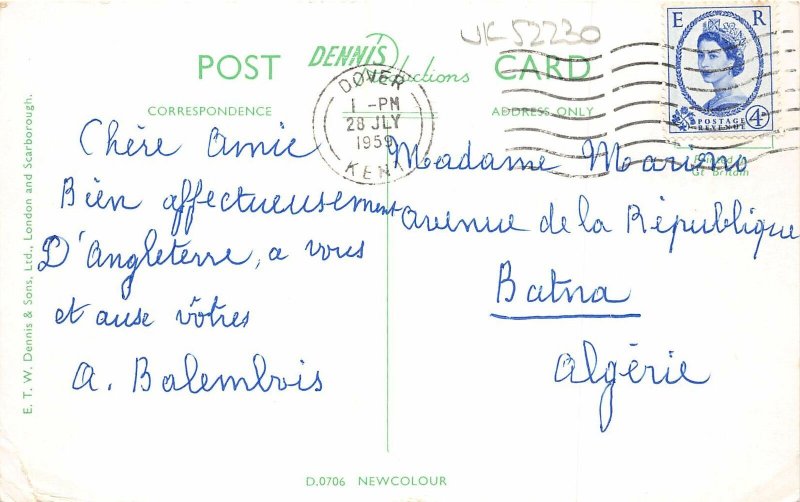 UK 52230
POST
DENNIS
Productions
CARD
CORRESPONDENCE
ADDRESS ONLY
E R
POSTAGE
REVENUE
4D
DOVER
1 - PM
28 JLY
1959
KENT
Printed in
Gt. Britain
Chère Amie
Bien affectueusement
D'Angleterre, a vous
et ause vôtres
A. Balembois
Madame Marieno
avenue de la République
Batna
Algérie
E. T. W. Dennis & Sons, Ltd., London and Scarborough.
D.0706 NEWCOLOUR